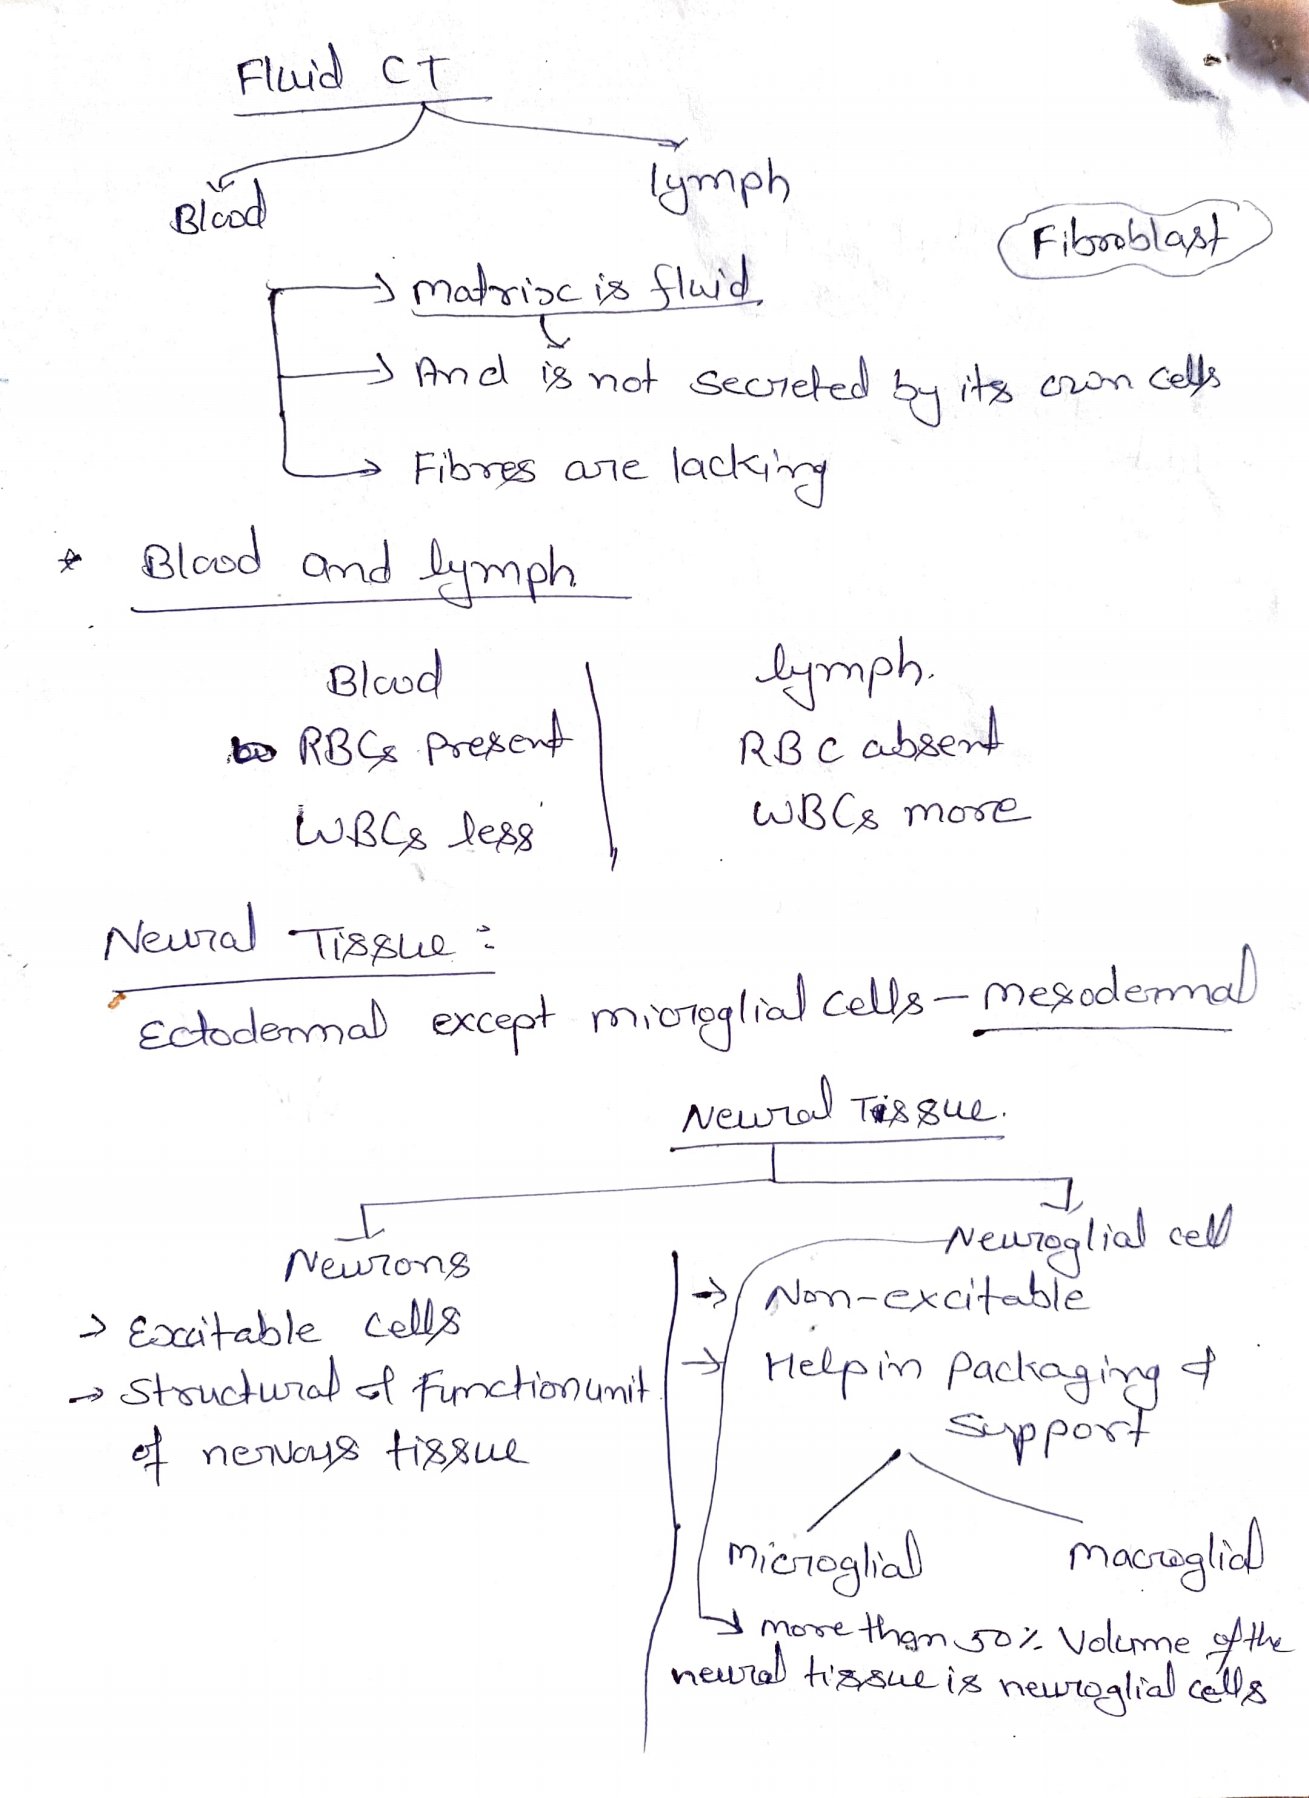 Fluid CT
Blood
lymph
Fibroblast
matrix is fluid
And is not secreted by its own cells
Fibres are lacking
* Blood and lymph
Blood
lymph.
RBCs present
RBC absent
WBCs less
WBCs more
Neural Tissue :
Ectodermal except microglial cells – mesodermal
Neural Tissue.
Neurons
Neuroglial cell
→ Excitable cells
→ Non-excitable
→ Structural & Function unit
of nervous tissue
→ Help in packaging &
support
microglial
macroglial
more than 50% volume of the
neural tissue is neuroglial cells